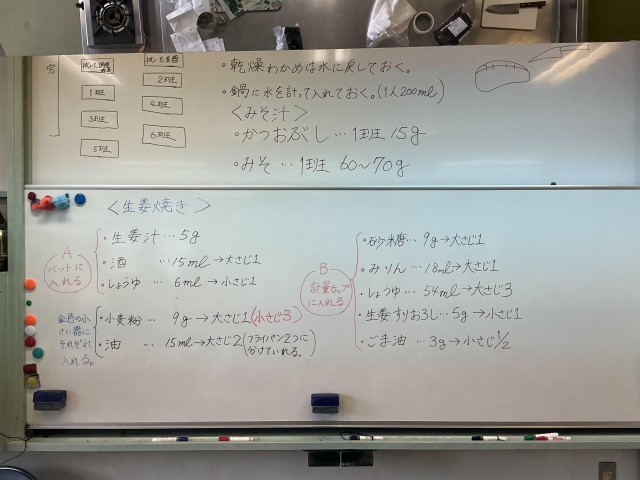 窓
拭いた調理器具
拭いた食器
1班
2班
3班
4班
5班
6班
・乾燥わかめは水に戻しておく。
・鍋に水を計って入れておく。(1人200ml)
<みそ汁>
・かつおぶし…1班 15g
・みそ …1班 60~70g
<生姜焼き>
A
バットに
入れる
・生姜汁…5g
・酒 …15ml→大さじ1
・しょうゆ … 6ml→小さじ1
金色の小
さい器に
それぞれ
入れる。
・小麦粉 … 9g→大さじ1(小さじ3)
・油 … 15ml→大さじ2(フライパン2つに
分けていれる。)
B
計量カップ
に入れる
・砂糖…9g→大さじ1
・みりん…18ml→大さじ1
・しょうゆ…54ml→大さじ3
・生姜すりおろし…5g→小さじ1
・ごま油 …3g→小さじ1/2